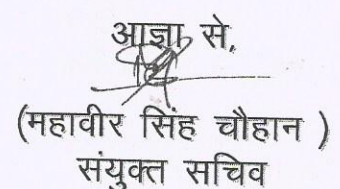 आज्ञा से,
(महावीर सिंह चौहान )
संयुक्त सचिव